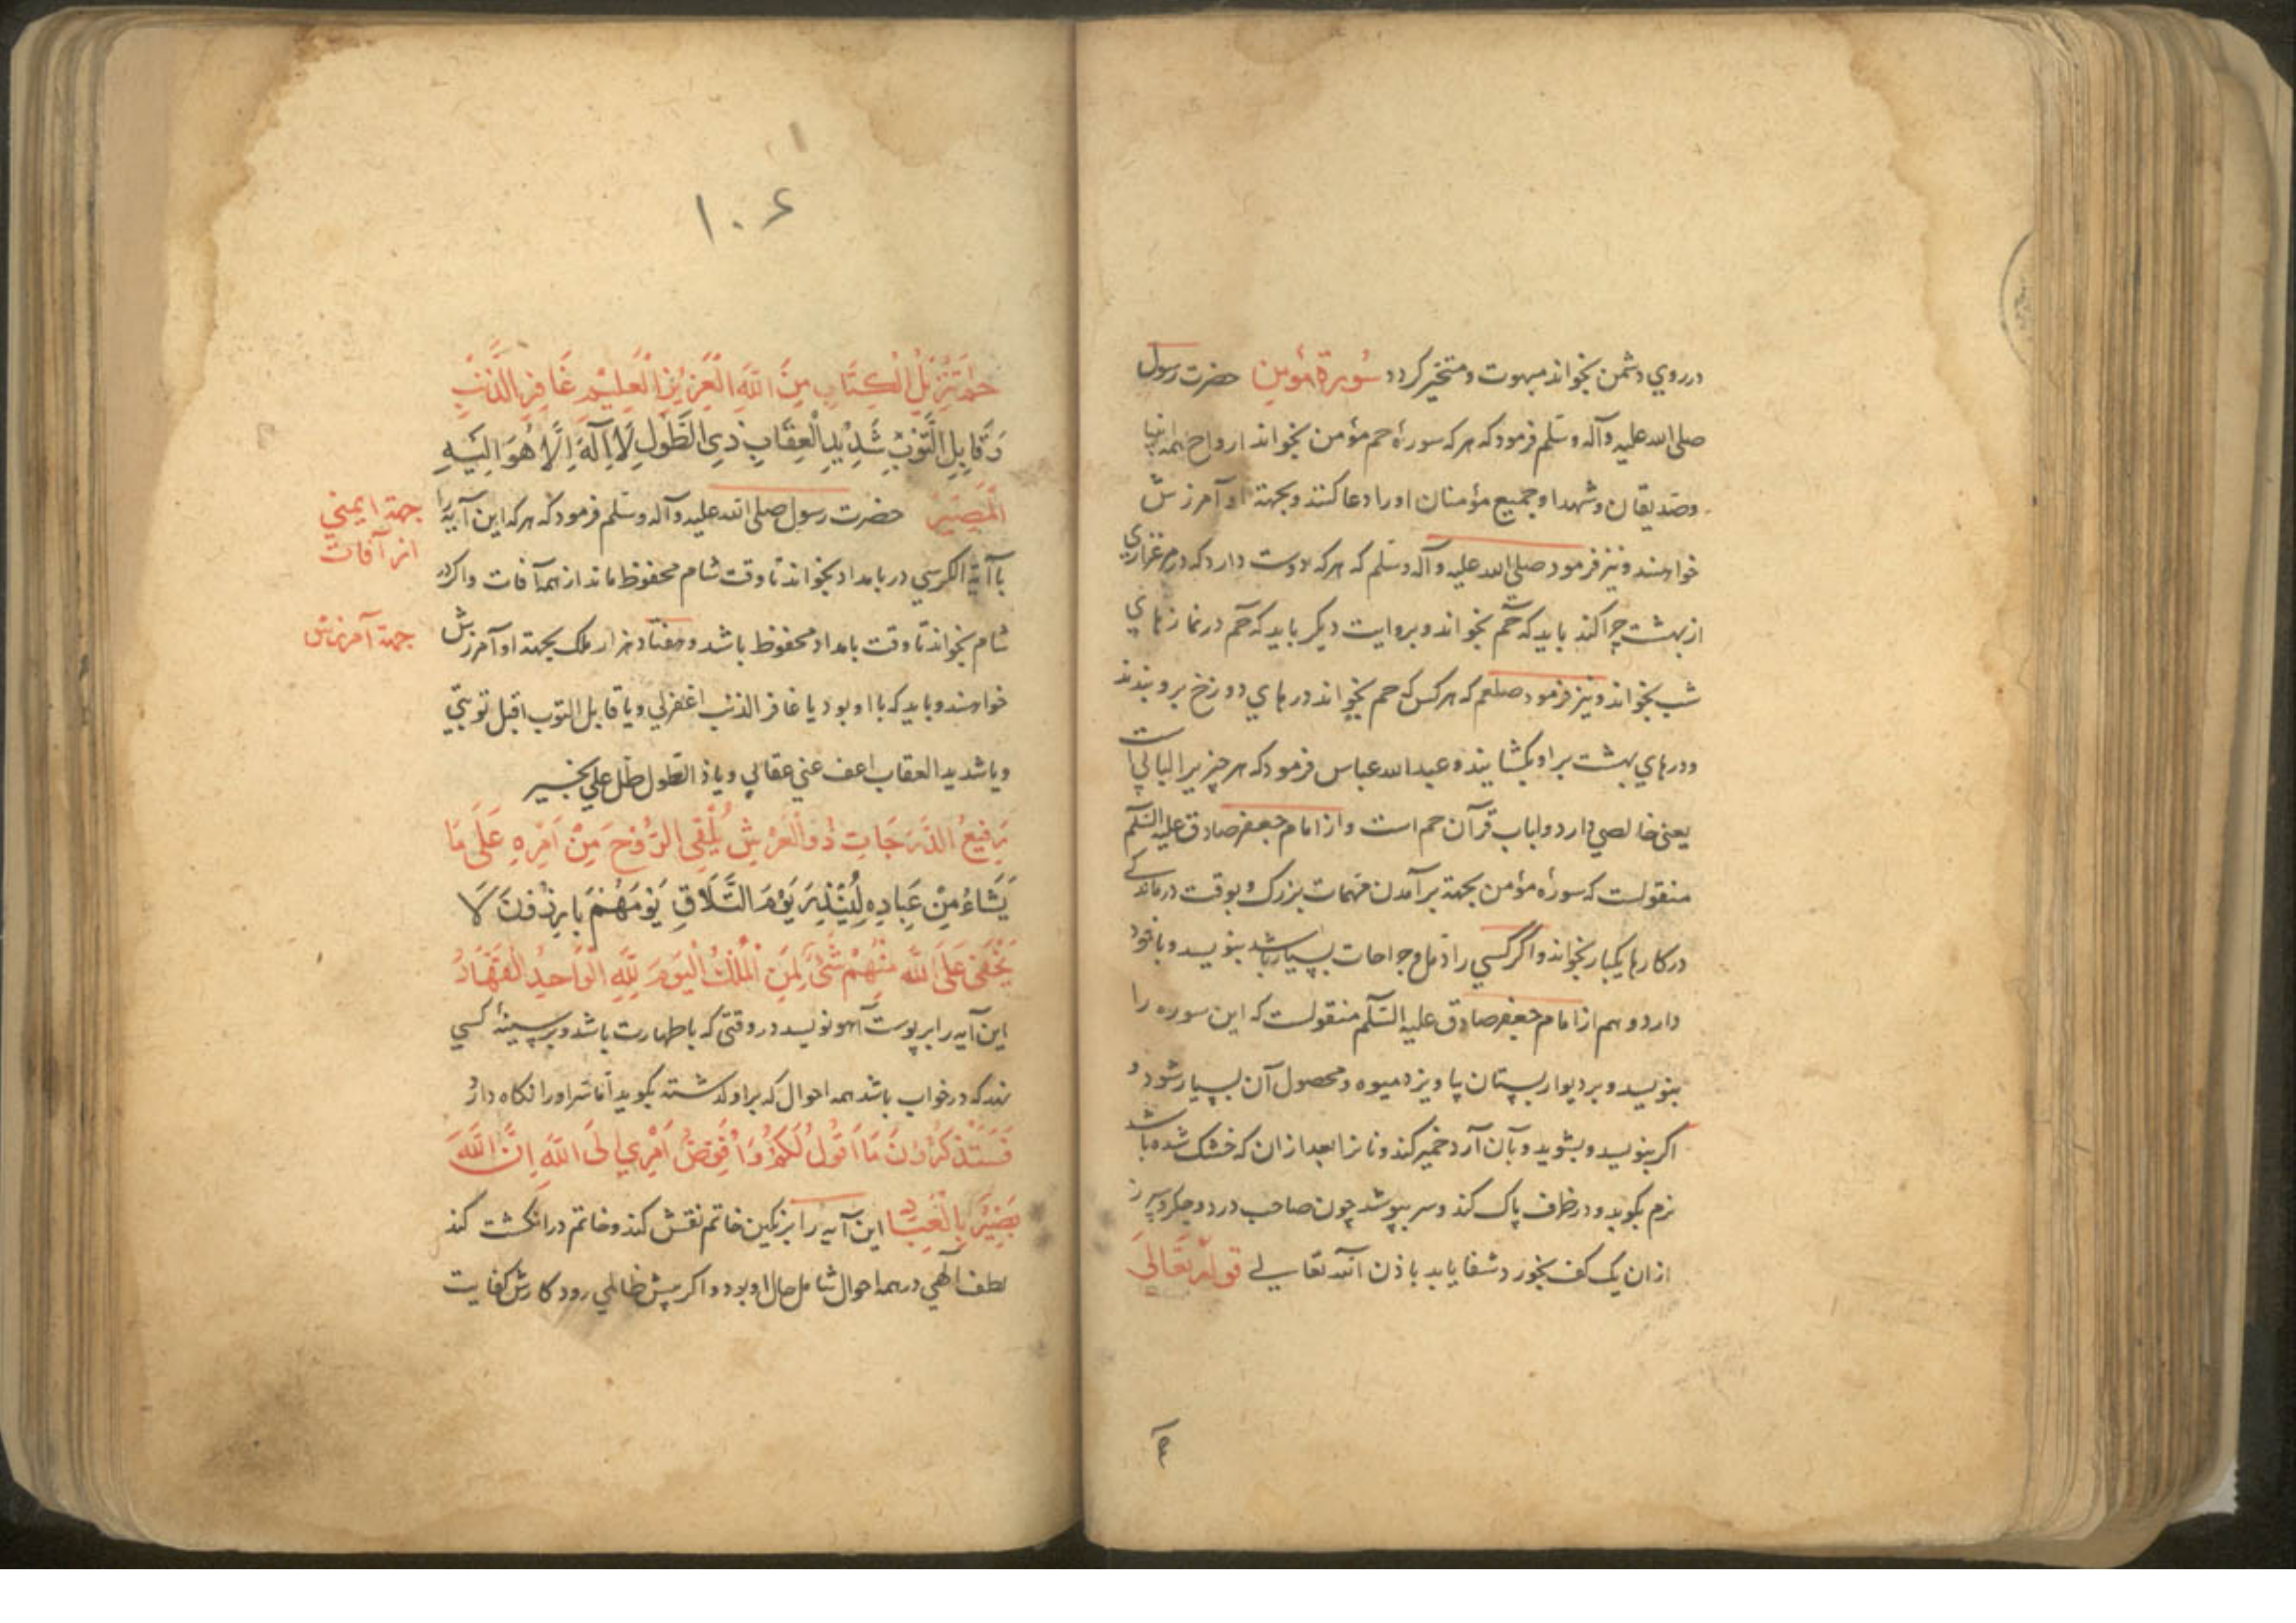 در روي دشمن بخواند مبهوت و متحير كردد سُورة مؤمن حضرت رسول
صلى الله عليه وآله وسلم فرمود كه هر كه سورهٔ حم مؤمن بخواند ارواح همه انبيا
و صديقان و شهدا و جميع مؤمنان او را دعا كنند و بجهة او آمرزش
خواهند و نيز فرمود صلى الله عليه وآله وسلم كه هر كه دوست دارد كه در مرغزاري
از بهشت چرا كند بايد كه حم بخواند و بروايت ديكر بايد كه حم در نمازهاي
شب بخواند و نيز فرمود صلعم كه هر كس كه حم بخواند درهاي دوزخ برو بندند
و درهاي بهشت براو بكشايند و عبد الله عباس فرمود كه هر چيزيرا لبابي است
يعنى خالصي دارد و لباب قرآن حم است و از امام جعفر صادق عليه السلم
منقولست كه سورهٔ مؤمن بجهة برآمدن مهمات بزرك و بوقت درماندكي
در كارها يكبار بخواند و اگر كسي را دمل و جراحات بسيار باشد بنويسد و با خود
دارد و هم از امام جعفر صادق عليه السلم منقولست كه اين سوره را
بنويسد و بر ديوار بستان بياويزد ميوه و محصول آن بسيار شود و
اكر بنويسد و بشويد و بآن آرد خمير كند و نانرا بعد از ان كه خشك شده باشد
نرم بكوبد و در ظرف پاك كند و سر بپوشد چون صاحب درد و جكر و سپرز
از ان يك كف بخورد شفا يابد باذن الله تعالى قوله تعالى
۱۰۶
حٰم تَنْزِيلُ الْكِتَابِ مِنَ اللَّهِ الْعَزِيزِ الْعَلِيمِ غَافِرِ الذَّنْبِ
وَقَابِلِ التَّوْبِ شَدِيدِ الْعِقَابِ ذِي الطَّوْلِ لَا إِلَهَ إِلَّا هُوَ إِلَيْهِ
الْمَصِيرُ حضرت رسول صلى الله عليه وآله وسلم فرمود كه هر كه اين آيه را
جهة ايمني
از آفات
با آية الكرسي در بامداد بخواند تا وقت شام محفوظ ماند از همه آفات و اكر در
شام بخواند تا وقت بامداد محفوظ باشد و هفتاد هزار ملك بجهة او آمرزش
جهة آمرزش
خواهند و بايد كه با او بود يا غافر الذنب اغفرلي و يا قابل التوب اقبل توبتي
و يا شديد العقاب اعف عني عقابي و يا ذا الطول طل علي بخير
رَفِيعُ الدَّرَجَاتِ ذُو الْعَرْشِ يُلْقِي الرُّوحَ مِنْ أَمْرِهِ عَلَى مَا
يَشَاءُ مِنْ عِبَادِهِ لِيُنْذِرَ يَوْمَ التَّلَاقِ يَوْمَهُمْ بَارِزُونَ لَا
يَخْفَى عَلَى اللَّهِ مِنْهُمْ شَيْءٌ لِمَنِ الْمُلْكُ الْيَوْمَ لِلَّهِ الْوَاحِدِ الْقَهَّارِ
اين آيه را بر پوست آهو نويسد در وقتي كه با طهارت باشد و بر سينهٔ كسي
نهد كه در خواب باشد همه احوال كه براو كذشته بكويد اما سر او را نكاه دارد
فَسَتَذْكُرُونَ مَا أَقُولُ لَكُمْ وَأُفَوِّضُ أَمْرِي إِلَى اللَّهِ إِنَّ اللَّهَ
بَصِيرٌ بِالْعِبَادِ اين آيه را بر نكين خاتم نقش كند و خاتم در انكشت كند
لطف الهي در همه احوال شامل حال او بود و اكر پيش ظالمي رود كارش كفايت